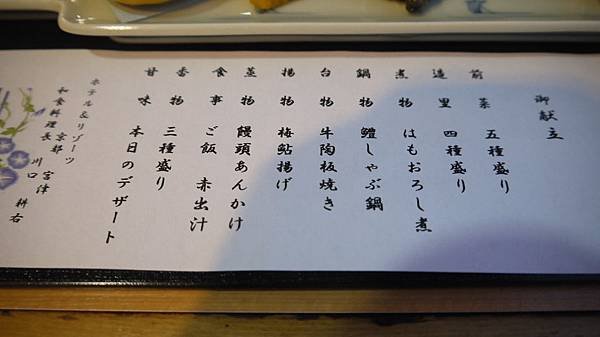 御献立
前菜 五種盛り
造里 四種盛り
煮物 はもおろし煮
鍋物 鱧しゃぶ鍋
台物 牛陶板焼き
揚物 梅鮎揚げ
蒸物 饅頭あんかけ
食事 ご飯 赤出汁
香物 三種盛り
甘味 本日のデザート
ホテル&リゾーツ
京都 宮津
和食料理長 川口 耕右